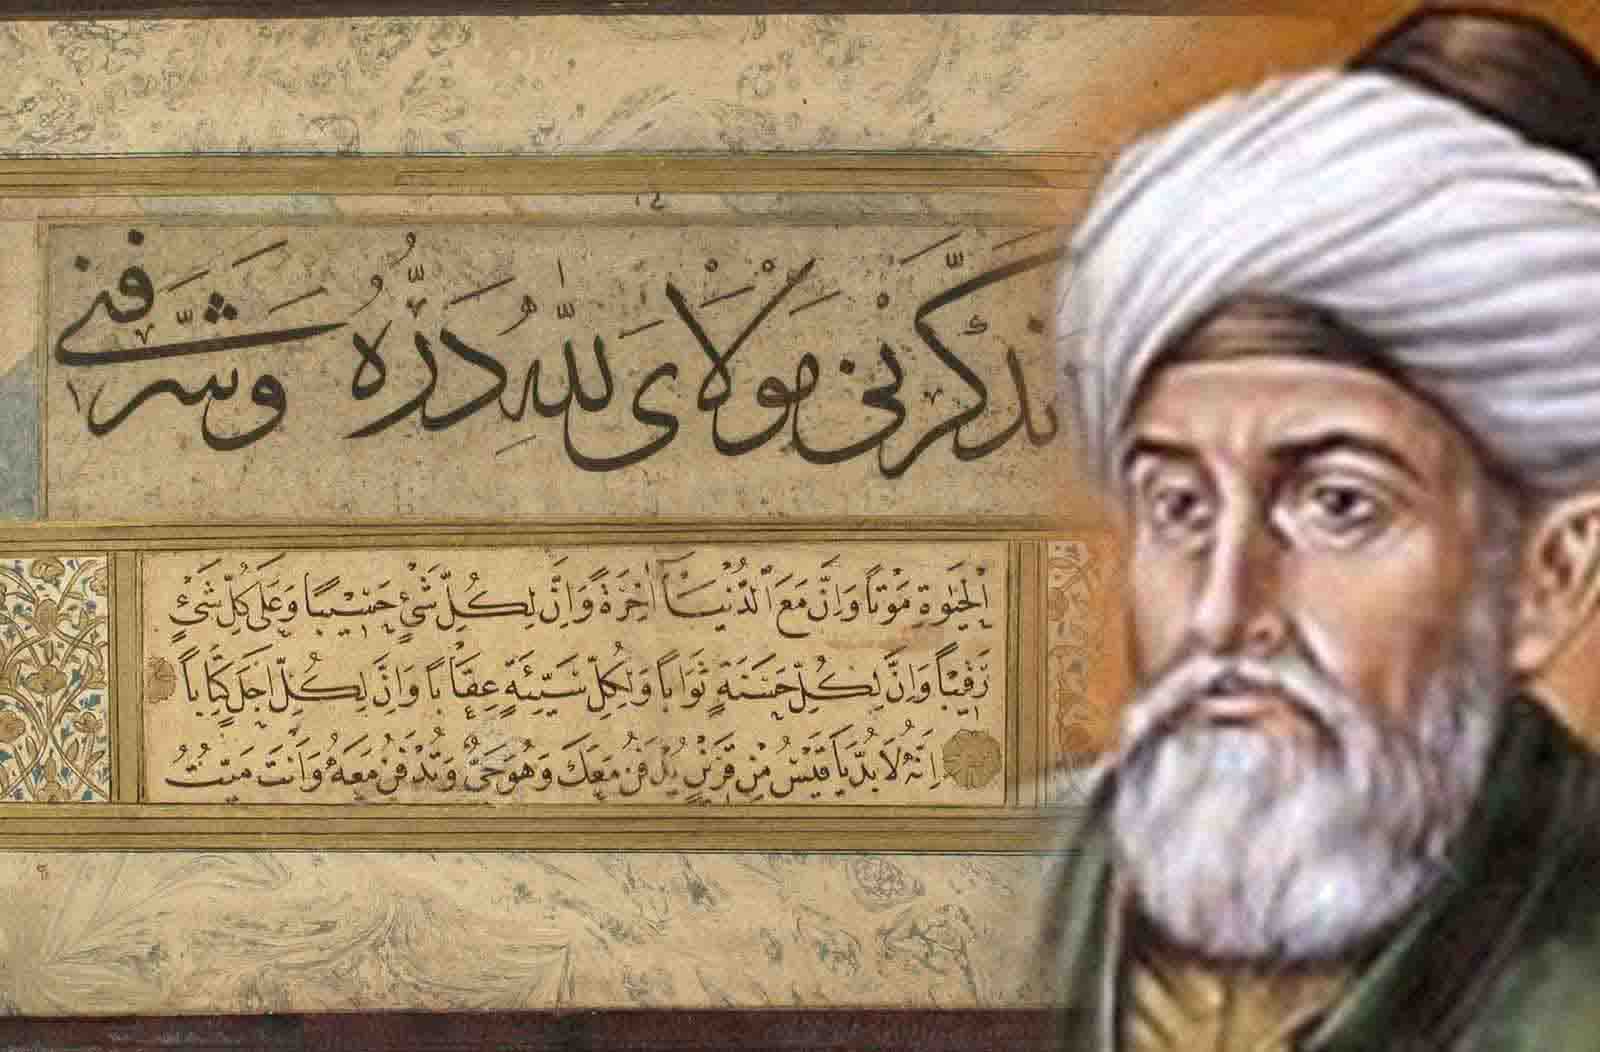 نذكرني مولاى لله دره وشرفني
الحيوة موتا وان مع الدنيا اخرة وان لكل شئ حسيبا وعلى كل شئ
رقيبا وان لكل حسنة ثوابا ولكل سيئة عقابا وان لكل اجل كتابا
انه لا بد يا قيس من قرين يدفن معك وهو حى وتدفن معه وانت ميت